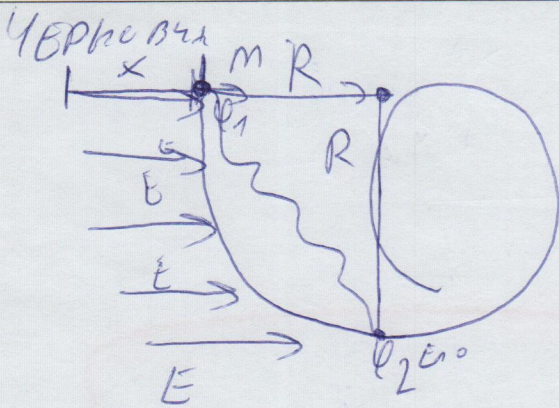 ЧЕРНОВИК
x M R
φ₁
R
E
E
E
E
φ₂ E=0